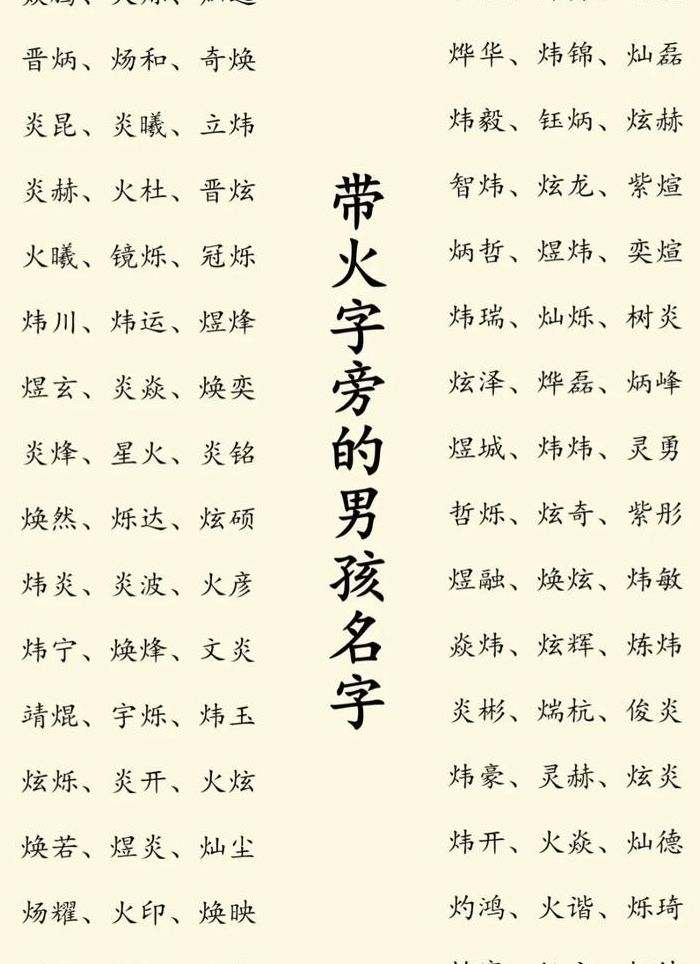 晋炳、炀和、奇焕
炎昆、炎曦、立炜
炎赫、火杜、晋炫
火曦、镜烁、冠烁
炜川、炜运、煜烽
煜玄、炎焱、焕奕
炎烽、星火、炎铭
焕然、烁达、炫硕
炜炎、炎波、火彦
炜宁、焕烽、文炎
靖焜、宇烁、炜玉
炫烁、炎开、火炫
焕若、煜炎、灿尘
炀耀、火印、焕映
带火字旁的男孩名字
烨华、炜锦、灿磊
炜毅、钰炳、炫赫
智炜、炫龙、紫煊
炳哲、煜炜、奕煊
炜瑞、灿烁、树炎
炫泽、烨磊、炳峰
煜城、炜炜、灵勇
哲烁、炫奇、紫彤
煜融、焕炫、炜敏
焱炜、炫辉、炼炜
炎彬、煓杭、俊炎
炜豪、灵赫、炫炎
炜开、火焱、灿德
灼鸿、火谐、烁琦